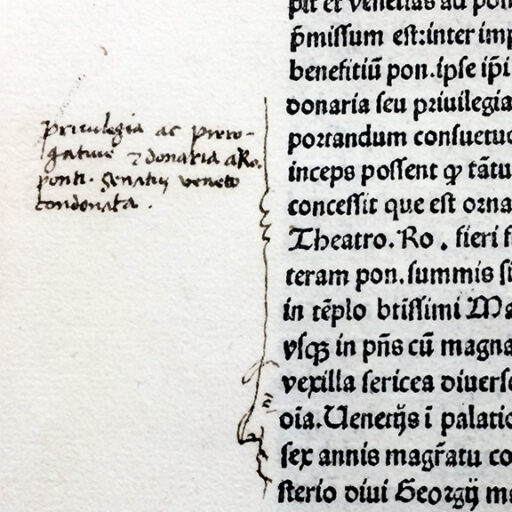 Priuilegia ac prero-
gatiue & donaria a Ro.
ponti. Senatui veneto
condonata.
pit et venetias ad pon
p̄missum est:inter imp
benefitiū pon.ipse ip̄i
donaria seu priuilegia
portandum consuetud
inceps possent qꝫ tātu
concessit que est orna
Theatro.Ro. fieri f
teram pon.summis si
in tēplo btissimi Ma
vsqꝫ in pn̄s cū magna
vexilla sericea diuerse
oīa.Uenetijs ī palatio
sex annis magr̄atu co
sterio diui Georgij ma